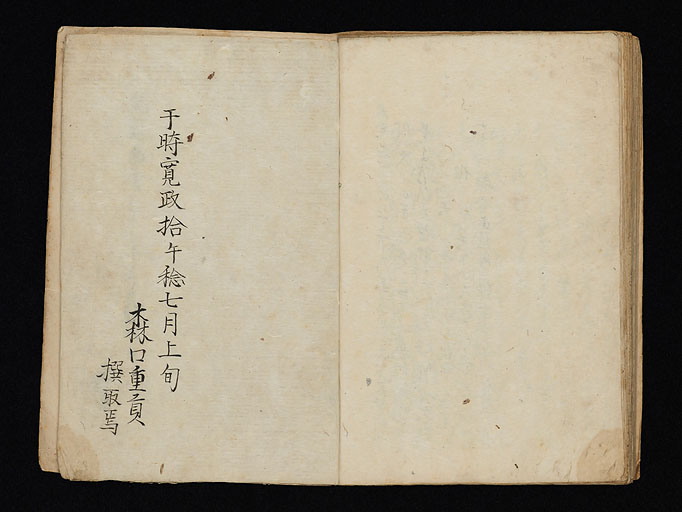 于時寛政拾午稔七月上旬
森口重貢
撰取焉